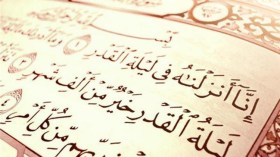 إِنَّا أَنزَلْنَٰهُ فِى لَيْلَةِ ٱلْقَدْرِ ١
لَيْلَةُ ٱلْقَدْرِ خَيْرٌ مِّنْ أَلْفِ شَهْرٍ
مِّن كُلِّ أَمْرٍ ٤